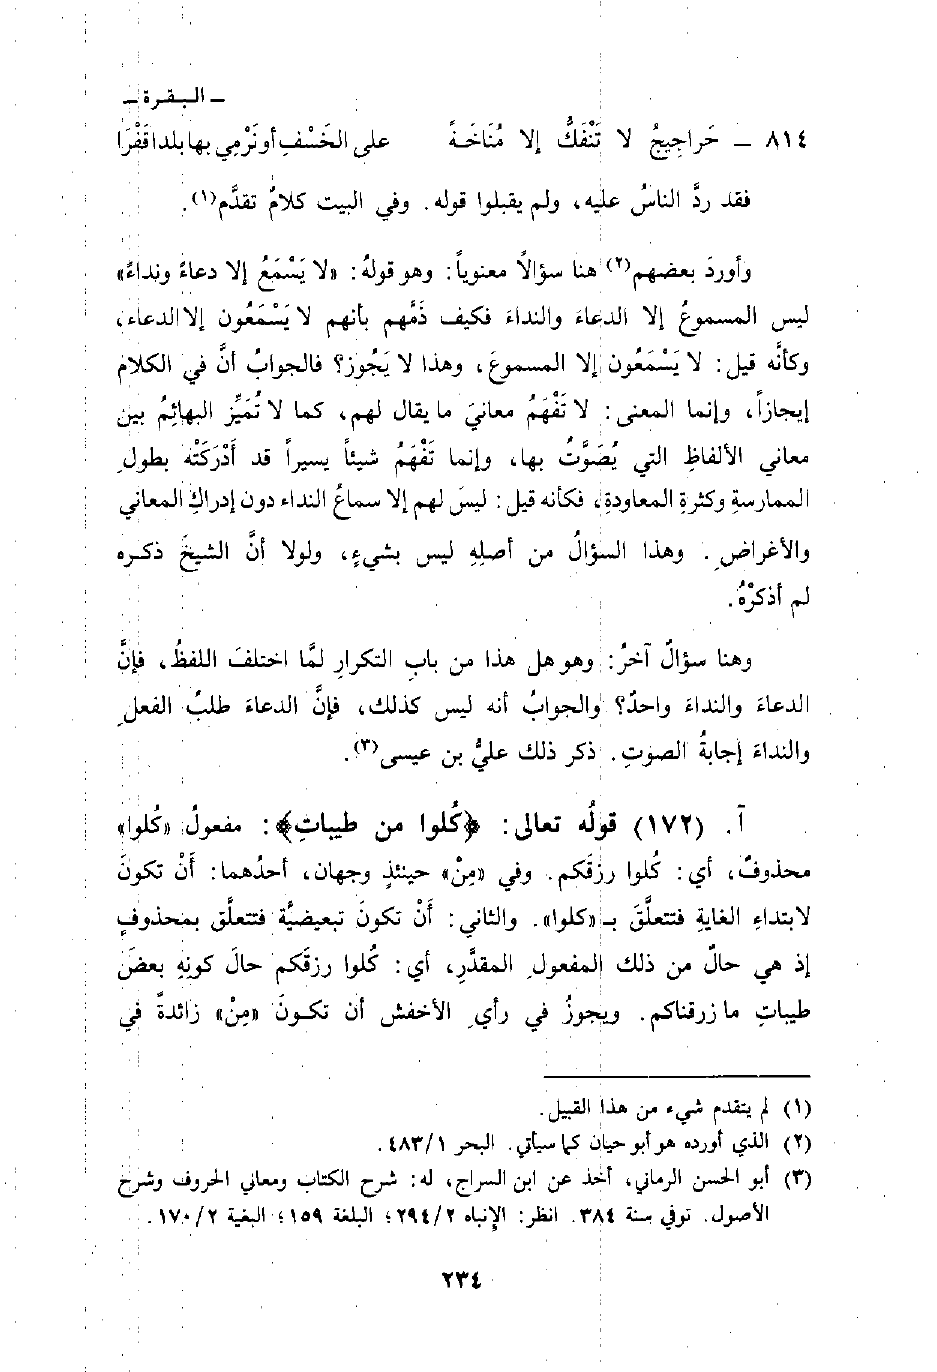 ـ البقرة ـ
٨١٤ ـ حَراجِيجُ لا تَنْفَكُّ إلا مُنَاخَةً على الخَسْفِ أو نَرْمِي بها بلداً قَفْرَا
فقد ردَّ الناسُ عليه، ولم يقبلوا قوله. وفي البيت كلامٌ تقدَّم(١).
وأوردَ بعضهم(٢) هنا سؤالاً معنوياً: وهو قولهُ: «لا يَسْمَعُ إلا دعاءً ونداءً»
ليس المسموعُ إلا الدعاءَ والنداءَ فكيف ذَمَّهم بأنهم لا يَسْمَعُون إلا الدعاء،
وكأنَّه قيل: لا يَسْمَعُون إلا المسموعَ، وهذا لا يَجُوز؟ فالجوابُ أنَّ في الكلام
إيجازاً، وإنما المعنى: لا تَفْهَمُ معانيَ ما يقال لهم، كما لا تُمَيِّز البهائِمُ بين
معاني الألفاظِ التي يُصَوَّتُ بها، وإنما تَفْهَمُ شيئاً يسيراً قد أَدْرَكَتْه بطولِ
الممارسةِ وكثرةِ المعاودةِ، فكأنه قيل: ليسَ لهم إلا سماعُ النداء دون إدراكِ المعاني
والأغراضِ. وهذا السؤالُ من أصلِهِ ليس بشيءٍ، ولولا أنَّ الشيخَ ذكره
لم أذكرْهُ.
وهنا سؤالٌ آخرُ: وهو هل هذا من بابِ التكرارِ لمَّا اختلفَ اللفظُ، فإنَّ
الدعاءَ والنداءَ واحدٌ؟ والجوابُ أنه ليس كذلك، فإنَّ الدعاءَ طلبُ الفعلِ
والنداءَ إجابةُ الصوتِ. ذكر ذلك عليُّ بن عيسى(٣).
آ. (١٧٢) قولُه تعالى: ﴿كُلوا من طيباتِ﴾: مفعولُ «كُلوا»
محذوفٌ، أي: كُلوا رزقَكم. وفي «مِنْ» حينئذٍ وجهان، أحدُهما: أَنْ تكونَ
لابتداءِ الغايةِ فتتعلَّقَ بـ«كلوا». والثاني: أَنْ تكونَ تبعيضيَّةً فتتعلَّق بمحذوفٍ
إذ هي حالٌ من ذلك المفعولِ المقدَّرِ، أي: كُلوا رزقَكم حالَ كونِهِ بعضَ
طيباتِ ما زرقناكم. ويجوزُ في رأيِ الأخفش أن تكونَ «مِنْ» زائدةً في
(١) لم يتقدم شيء من هذا القبيل.
(٢) الذي أورده هو أبو حيان كما سيأتي. البحر ٤٨٣/١.
(٣) أبو الحسن الرماني، أخذ عن ابن السراج، له: شرح الكتاب ومعاني الحروف وشرح
الأصول. توفي سنة ٣٨٤. انظر: الإنباه ٢٩٤/٢؛ البلغة ١٥٩؛ البغية ١٧٠/٢.
٢٣٤